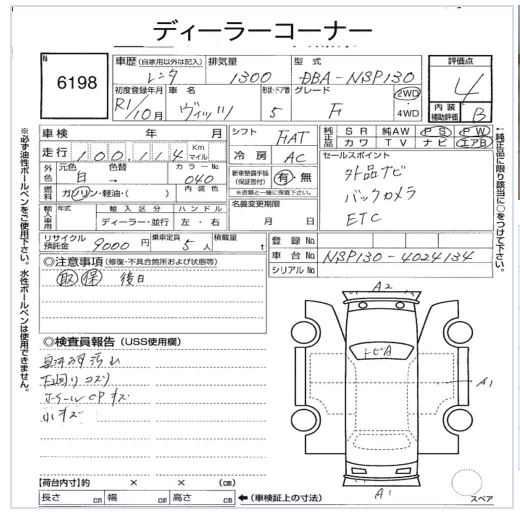 ディーラーコーナー
No
6198
車歴 (自家用以外は記入) 排気量 型式
レンタ 1300 DBA-NSP130
初度登録年月 車名 形状・ドア数 グレード 2WD・4WD
R1/10月 ヴィッツ 5 F
評価点
4
内装補助評価 B
車検 年 月 シフト FAT
走行 100,114 Km マイル 冷房 AC
純正品 SR 純AW PS PW
カワ TV ナビ エアB
外色 元色 色替 カラーNo
白 → 040
燃料 ガソリン・軽油・( ) 内装色
新車整備手帳(保証書付) 有・無
※書類と一緒に保管して下さい。
セールスポイント
外品ナビ
バックカメラ
ETC
輸入車用 年式 輸入区分 ハンドル
ディーラー・並行 左・右
名義変更期限
月 日
リサイクル預託金 9000円 乗車定員 5人 積載量 t
登録No
車台No NSP130-4024134
シリアルNo
◎注意事項 (修復・不具合箇所および状態等)
取 保 後日
◎検査員報告 (USS使用欄)
下回りコスリ
ホイールCPキズ
小キズ
A2
トビA
A1
A1
スペア
【荷台内寸】約 × × (cm)
長さ cm 幅 cm 高さ cm ←(車検証上の寸法)
※必ず油性ボールペンをご使用下さい。水性ボールペンは使用できません。
←純正品に限り該当に○をつけて下さい。